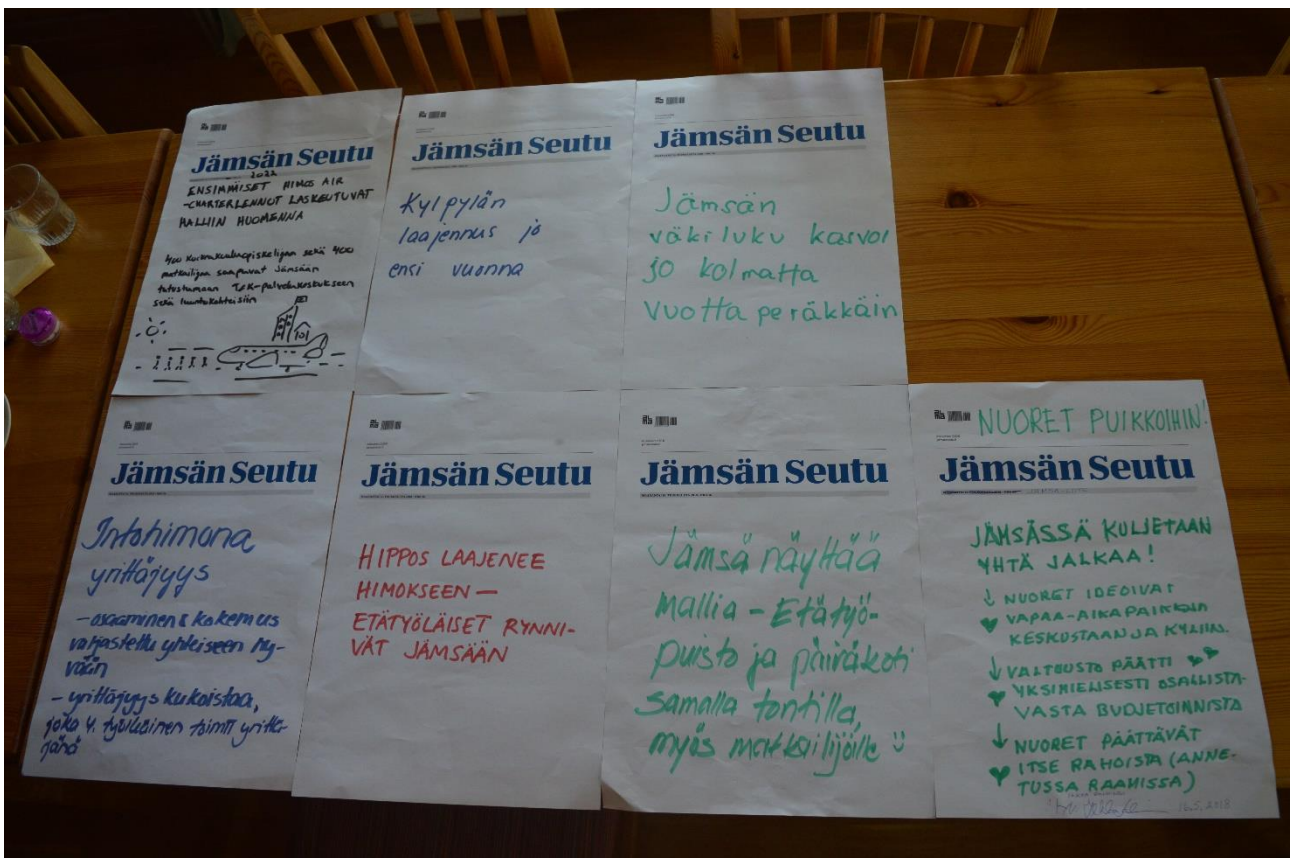 Jämsän Seutu
2022
ENSIMMÄISET HIMOS AIR
-CHARTERLENNOT LASKEUTUVAT
HALLIIN HUOMENNA
400 korkeakouluopiskelijan sekä 400
matkailijan saapuvat Jämsään
tutustumaan TAK-palvelukeskukseen
sekä luontokohteisiin
Jämsän Seutu
Kylpylän
laajennus jo
ensi vuonna
Jämsän Seutu
Jämsän
väkiluku kasvoi
jo kolmatta
vuotta peräkkäin
Jämsän Seutu
Intohimona
yrittäjyys
– osaaminen & kokemus
valjastettu yhteiseen hy-
vään
– yrittäjyys kukoistaa,
joka 4. työikäinen toimii yrittä-
jänä
Jämsän Seutu
HIPPOS LAAJENEE
HIMOKSEEN —
ETÄTYÖLÄISET RYNNI-
VÄT JÄMSÄÄN
Jämsän Seutu
Jämsä näyttää
mallia – Etätyö-
puisto ja päiväkoti
samalla tontilla,
myös matkailijoille :)
NUORET PUIKKOIHIN!
Jämsän Seutu
JÄMSÄSSÄ KULJETAAN
YHTÄ JALKAA!
↓ NUORET IDEOIVAT
♥ VAPAA-AIKAPAIKKOJA
KESKUSTAAN JA KYLIIN.
↓ VALTUUSTO PÄÄTTI ♥♥
♥ YKSIMIELISESTI OSALLISTA-
VASTA BUDJETOINNISTA
↓ NUORET PÄÄTTÄVÄT
♥ ITSE RAHOISTA (ANNE-
TUSSA RAAMISSA)
16.5.2018